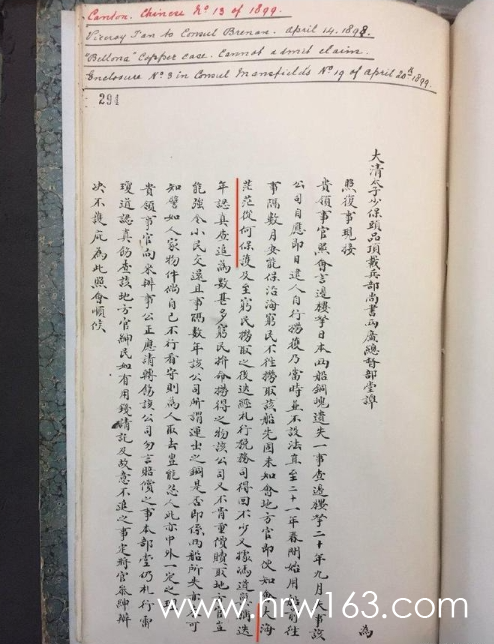 Canton. Chinese Nº 13 of 1899.
Viceroy Tan to Consul Brenan. April 14. 1898.
"Bellona" Copper case. Cannot admit claim.
Enclosure Nº 3 in Consul Mansfield's Nº 19 of April 20th 1899.
294
大清太子少保頭品頂戴兵部尚書兩廣總督部堂譚 為
照復事現接
貴領事官照會言邊樓挐日本兩船銅塊遺失一事查邊樓挐二十年九月失事該
公司自應即日建人自行撈獲乃當時並不設法直至二十一年春間始用船前往
事隔數月安能保沿海窮民不往撈取該船先固未知會地方官即使知會大海
茫茫從何保護及至窮民撈取之後迭經札行稅務司得回不少又據馮道迭
年認真查追為數甚多窮民拚命撈得之物該公司又不肯重價贖取地方官豈
能強令小民交還且事隔數年該公司所謂運土之銅是否即係兩船所失
知譬如人家物件倘自己不行看守則為人取去豈能怨人此亦中外一定之
貴領事官向來辦事公正應請轉飭該公司勿言賠償之事本部堂仍札行雷
瓊道認真飭查該地方官紳民如有用錢請託及故意不追之事定將官參紳辦
決不護庇為此照會順候
www.hrw163.com